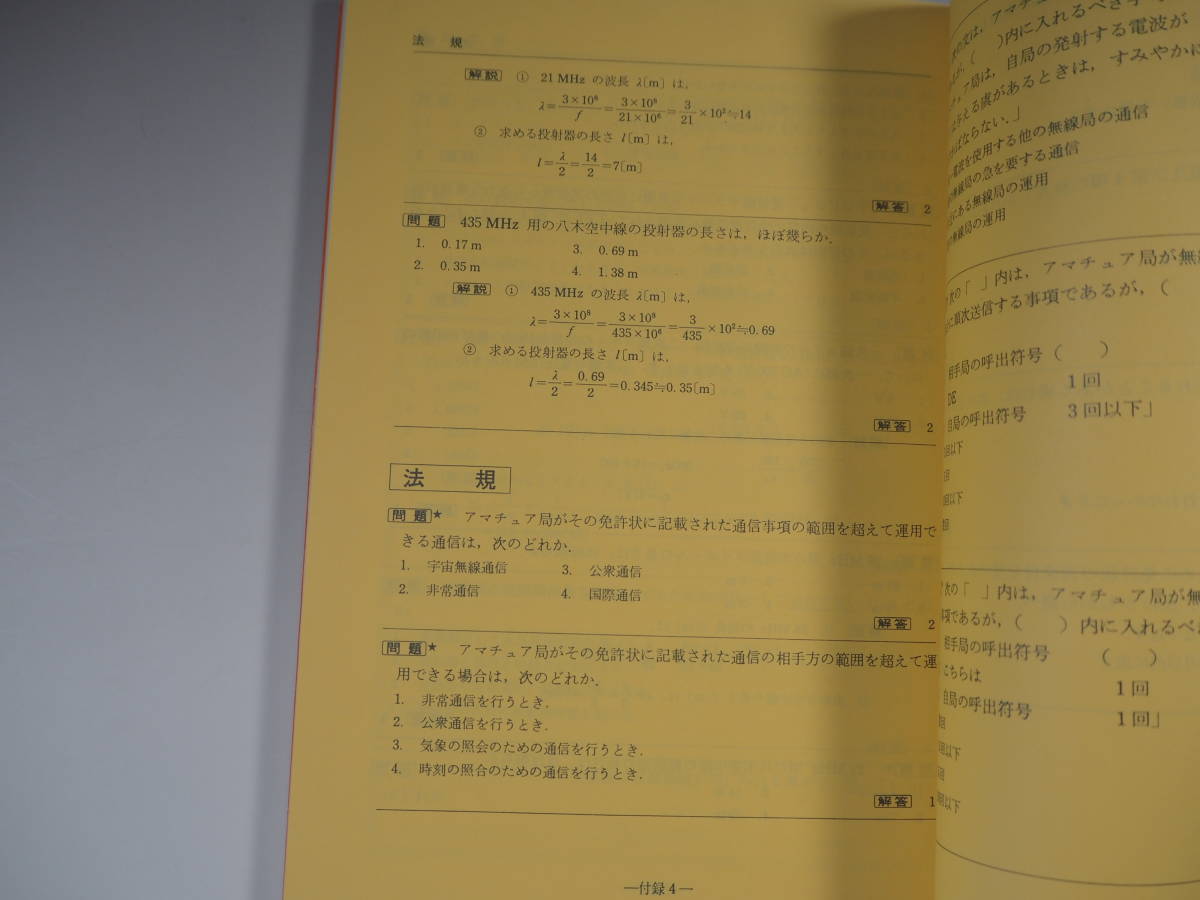 法 規
解説 ① 21 MHz の波長 λ〔m〕は,
λ=3×10⁸/f=3×10⁸/21×10⁶=3/21×10²≒14
② 求める投射器の長さ l〔m〕は,
l=λ/2=14/2=7〔m〕
解答 2
問題 435 MHz 用の八木空中線の投射器の長さは,ほぼ幾らか.
1. 0.17 m 3. 0.69 m
2. 0.35 m 4. 1.38 m
解説 ① 435 MHz の波長 λ〔m〕は,
λ=3×10⁸/f=3×10⁸/435×10⁶=3/435×10²≒0.69
② 求める投射器の長さ l〔m〕は,
l=λ/2=0.69/2=0.345≒0.35〔m〕
解答 2
法 規
問題★ アマチュア局がその免許状に記載された通信事項の範囲を超えて運用で
きる通信は,次のどれか.
1. 宇宙無線通信 3. 公衆通信
2. 非常通信 4. 国際通信
解答 2
問題★ アマチュア局がその免許状に記載された通信の相手方の範囲を超えて運
用できる場合は,次のどれか.
1. 非常通信を行うとき.
2. 公衆通信を行うとき.
3. 気象の照会のための通信を行うとき.
4. 時刻の照合のための通信を行うとき.
解答 1
―付録 4―
の文は,アマチュ
が,( )内に入れるべき字
局は,自局の発射する電波が
与える虞があるときは,すみやかに
ばならない.」
電波を使用する他の無線局の通信
無線局の急を要する通信
にある無線局の運用
無線局の運用
次の「 」内は,アマチュア局が無線
に順次送信する事項であるが,(
相手局の呼出符号 ( )
DE 1回
自局の呼出符号 3回以下」
回以下
回
回以下
回
次の「 」内は,アマチュア局が無
事項であるが,( )内に入れるべ
相手局の呼出符号 ( )
こちらは 1回
自局の呼出符号 1回」
回
回以下
回
回以下